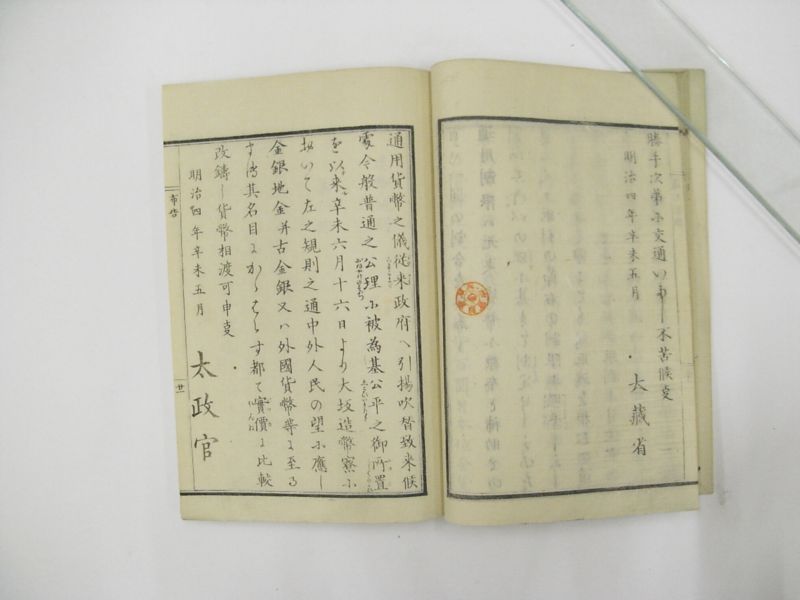 勝手次第ニ交通いたし不苦候事
明治四年辛未五月
大藏省
通用貨幣之儀従来政府ヘ引揚吹替致来候
處今般普通之公理ニ被為基公平之御所置
を以来辛未六月十六日より大坂造幣寮ニ
おいて左之規則之通中外人民の望ニ應し
金銀地金并古金銀又ハ外國貨幣等に至る
まて其名目にかゝはらす都て實價に比較
改鑄し貨幣相渡可申事
明治四年辛未五月
太政官
布告
廿